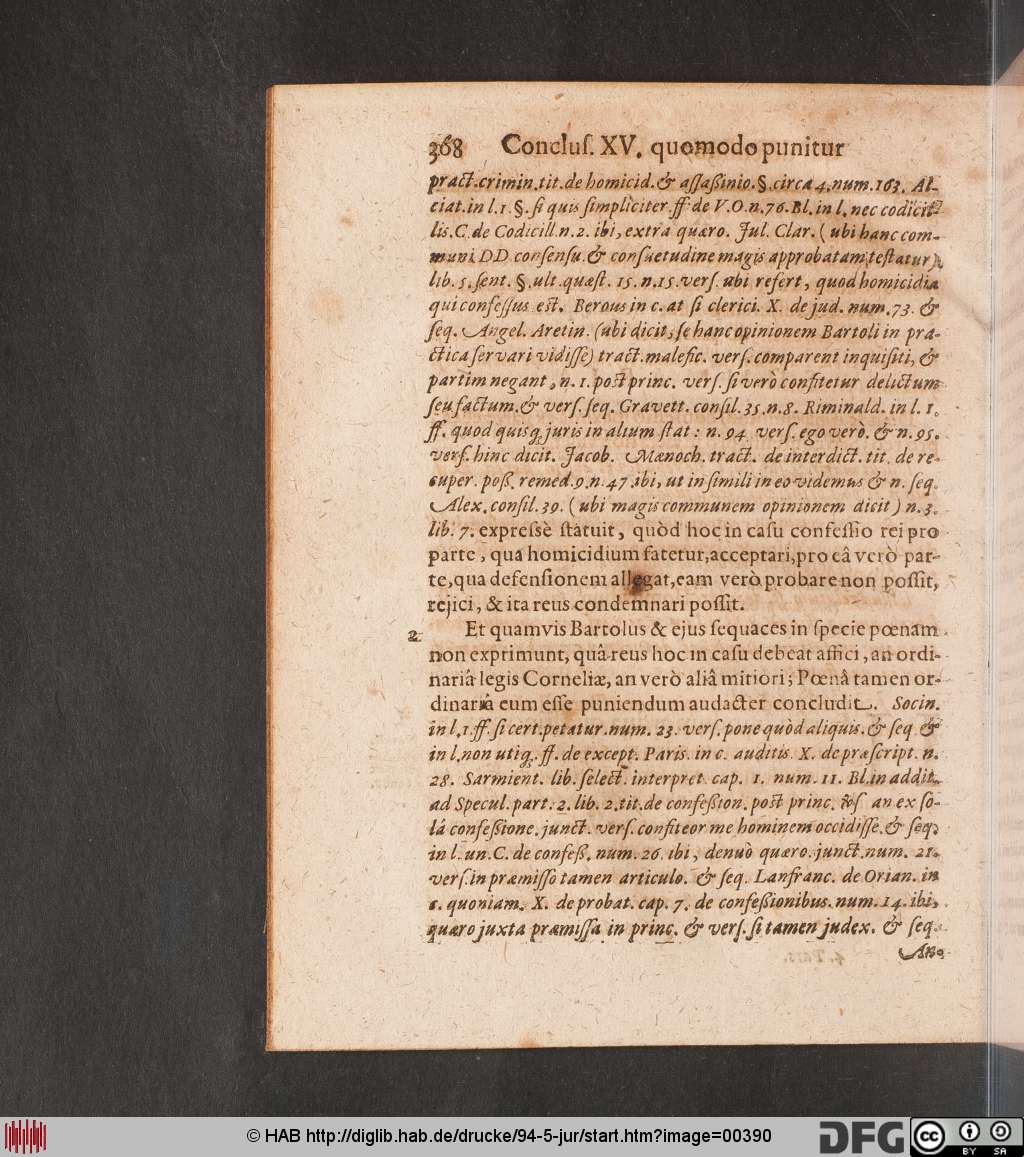 368 Concluſ. XV. quomodo punitur
pract. crimin. tit. de homicid. & aſſaßinio. §. circa 4. num. 163. Al-
ciat. in l. 1 §. ſi quis ſimpliciter. ff. de V. O. n. 76. Bl. in l. nec codicil-
lis. C. de Codicill. n. 2. ibi, extra quæro. Jul. Clar. (ubi hanc com-
muni DD conſenſu. & conſuetudine magis approbatam teſtatur)
lib. 5. ſent. §. ult. quæſt. 15. n. 15. verſ. ubi refert, quod homicidia
qui confeſſus est. Berous in c. at ſi clerici. X. de jud. num. 73. &
ſeq. Angel. Aretin. (ubi dicit, ſe hanc opinionem Bartoli in pra-
ctica ſervari vidiſſe) tract. malefic. verſ. comparent inquiſiti, &
partim negant, n. 1. post princ. verſ. ſi verò confitetur delictum
ſeu factum. & verſ. ſeq. Gravett. conſil. 35. n. 8. Riminald. in l. 1.
ff. quod quisq; juris in alium ſtat: n. 94 verſ. ego verò. & n. 95.
verſ. hinc dicit. Jacob. Mænoch. tract. de interdict. tit. de re-
cuper. poß. remed. 9. n. 47. ibi, ut in ſimili in eo videmus & n. ſeq.
Alex. conſil. 39. (ubi magis communem opinionem dicit) n. 3.
lib. 7. expreſsè ſtatuit, quòd hoc in caſu confeſſio rei pro
parte, qua homicidium fatetur, acceptari, pro eâ verò par-
te, qua defenſionem allegat, eam verò probare non poſſit,
rejici, & ita reus condemnari poſſit.
2. Et quamvis Bartolus & ejus ſequaces in ſpecie pœnam
non exprimunt, quâ reus hoc in caſu debeat affici, an ordi-
nariâ legis Corneliæ, an verò aliâ mitiori; Pœnâ tamen or-
dinariâ eum eſſe puniendum audacter concludit. Socin.
in l. 1. ff. ſi cert. petatur. num. 23. verſ. pone quòd aliquis. & ſeq. &
in l. non utiq;. ff. de except. Paris. in c. auditis. X. de præſcript. n.
28. Sarmient. lib. ſelect. interpret. cap. 1. num. 11. Bl. in addit.
ad Specul. part. 2. lib. 2. tit. de confeßion. post princ. verſ an ex ſo-
lâ confeßione. junct. verſ. confiteor me hominem occidiſſe. & ſeq.
in l. un. C. de confeß. num. 26. ibi, denuò quæro. junct. num. 21.
verſ. in præmiſſo tamen articulo. & ſeq. Lanfranc. de Orian. in
c. quoniam. X. de probat. cap. 7. de confeßionibus. num. 14. ibi,
quæro juxta præmiſſa in princ. & verſ. ſi tamen judex. & ſeq.
An-
© HAB http://diglib.hab.de/drucke/94-5-jur/start.htm?image=00390
DFG
cc BY SA